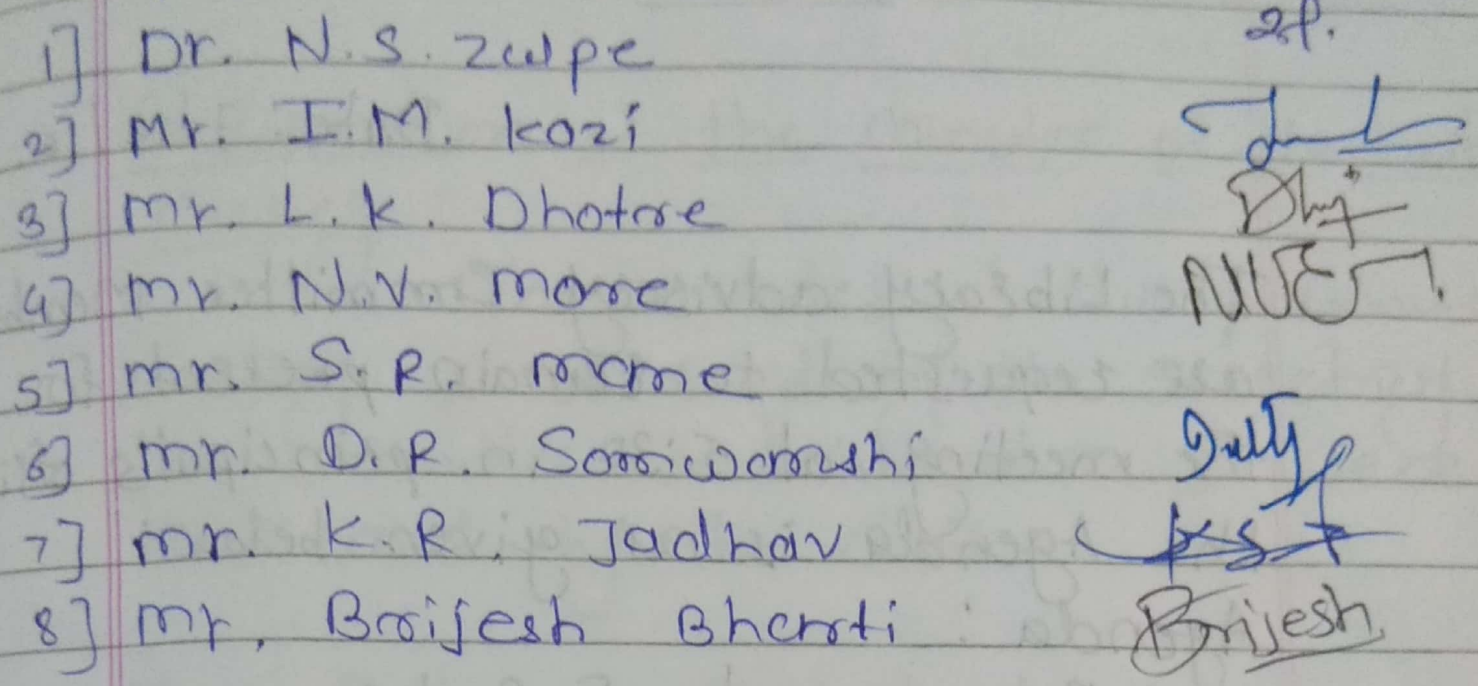 1] Dr. N.S. Zulpe
2] Mr. I.M. Kazi
3] Mr. L.K. Dhotre
4] Mr. N.V. More
5] Mr. S.R. Mane
6] Mr. D.R. Somwanshi
7] Mr. K.R. Jadhav
8] Mr. Brijesh Bharti Brijesh